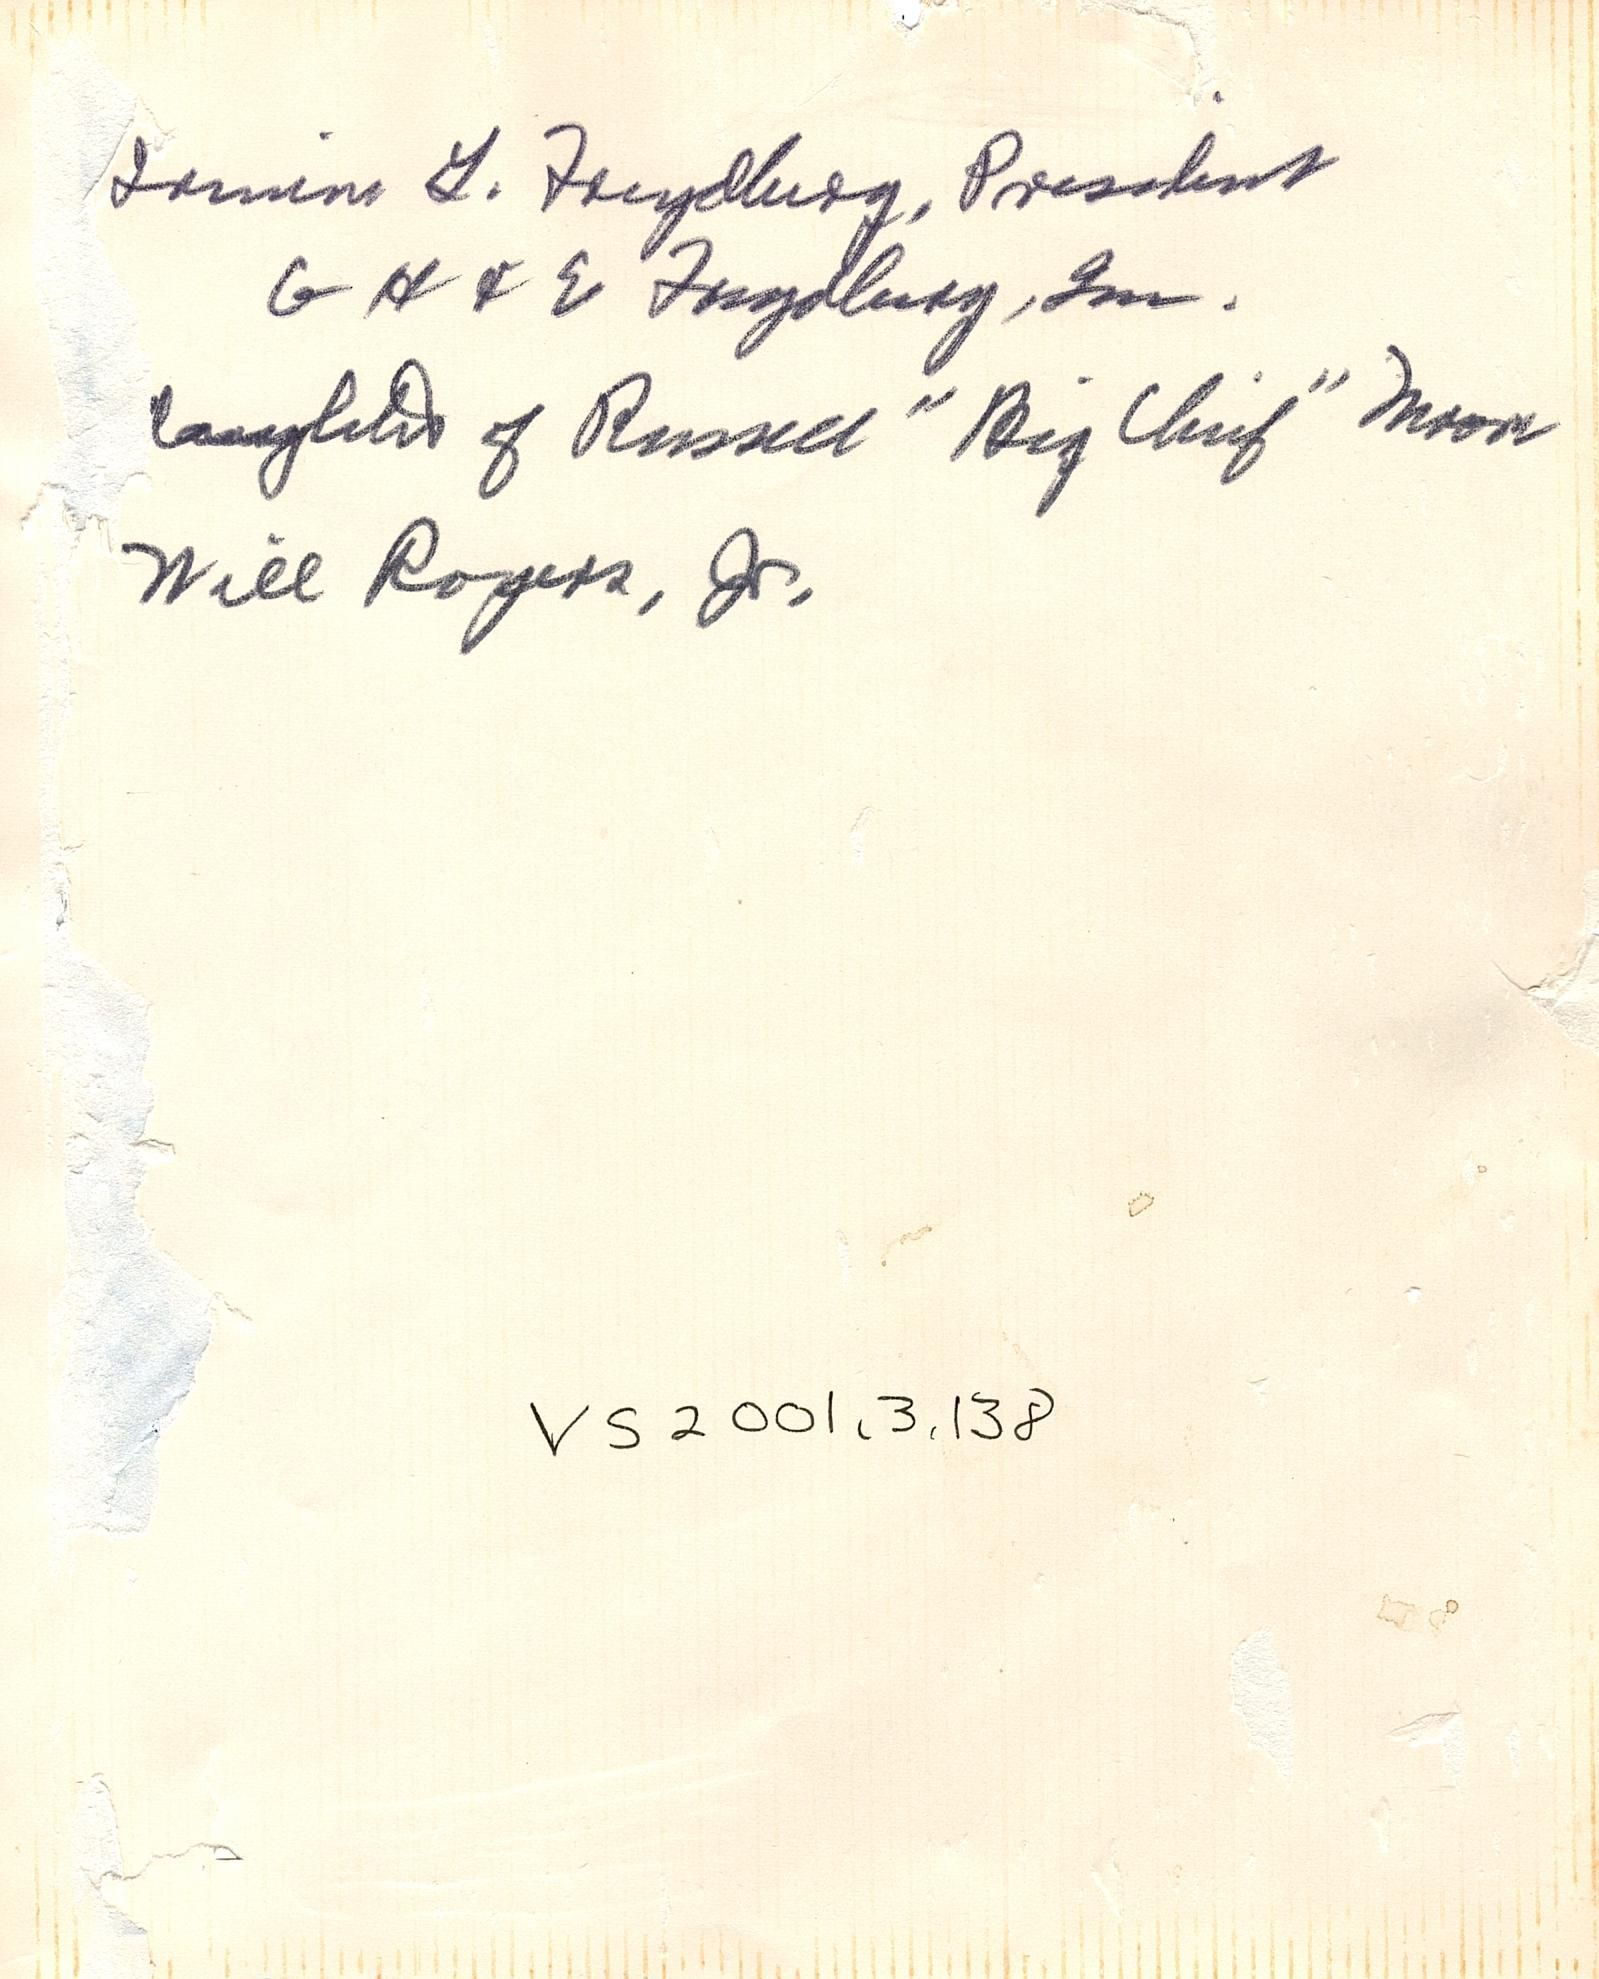 L. Freydberg, President
G H & E Freydberg, Inc.
Daughter of Russell "Big Chief" Moon
Will Rogers, Jr.
VS2001.3.138